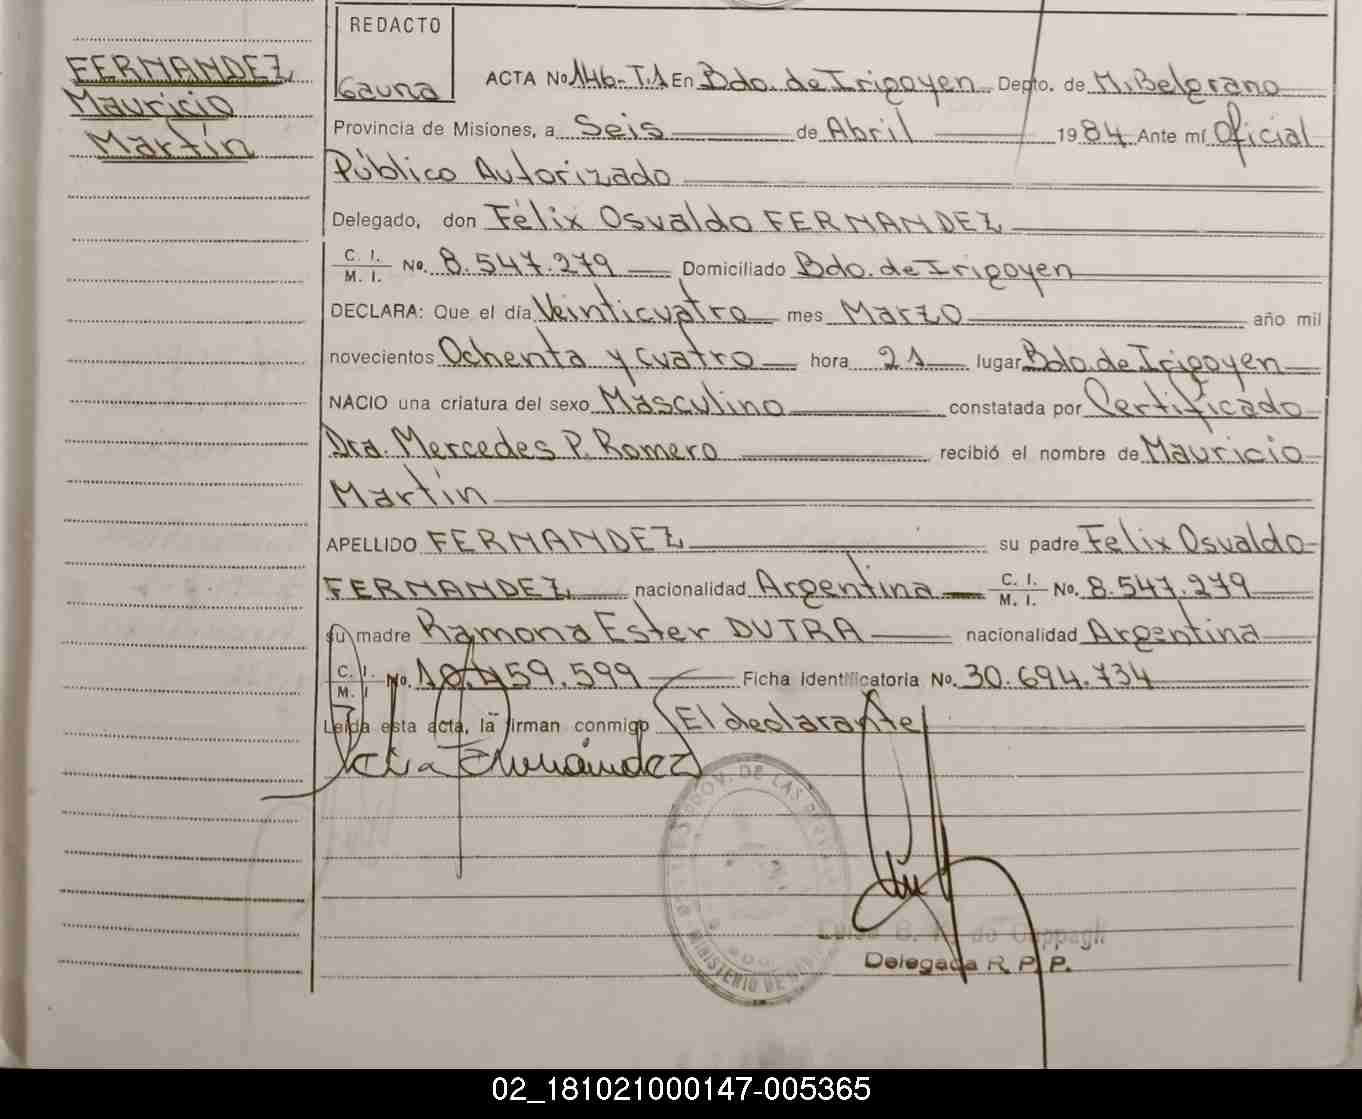 REDACTO
Gauna
FERNANDEZ
Mauricio
Martín
ACTA No 146-T.1 En Bdo. de Irigoyen Depto. de M. Belgrano
Provincia de Misiones, a Seis de Abril 1984 Ante mí Oficial
Público Autorizado
Delegado, don Félix Osvaldo FERNANDEZ
C. I.
M. I. No. 8.547.279 Domiciliado Bdo. de Irigoyen
DECLARA: Que el día Veinticuatro mes Marzo año mil
novecientos Ochenta y cuatro hora 21 lugar Bdo. de Irigoyen
NACIO una criatura del sexo Masculino constatada por Certificado
Dra. Mercedes P. Romero recibió el nombre de Mauricio
Martín
APELLIDO FERNANDEZ su padre Felix Osvaldo
FERNANDEZ nacionalidad Argentina C. I. M. I. No. 8.547.279
su madre Ramona Ester DUTRA nacionalidad Argentina
C. I. M. I No. 10.459.599 Ficha identificatoria No. 30.694.734
Leída esta acta, la firman conmigo El declarante
Fernández
PROV. DE LAS PERSONAS
MINISTERIO DE
Delegada R. P. P.
02_181021000147-005365